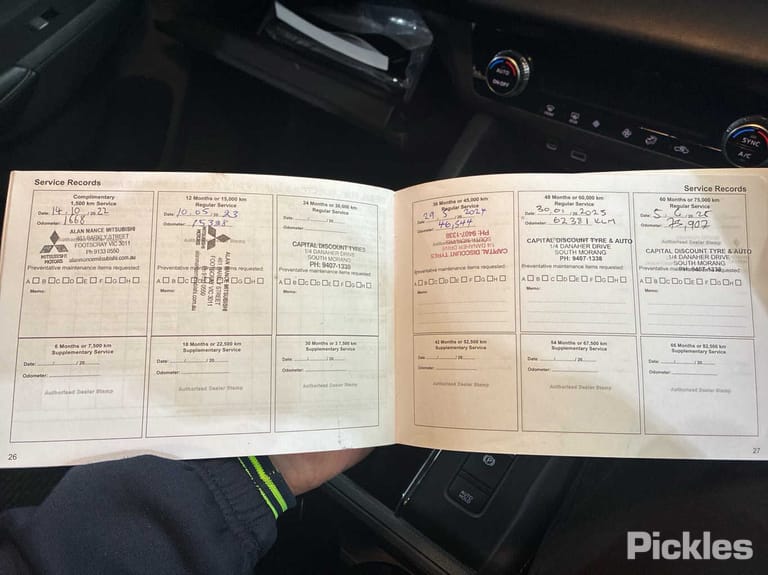 Service Records
Complimentary
1,500 km Service
Date: 14 / 10 / 20 22
1668
ALAN MANCE MITSUBISHI
FOOTSCRAY VIC 3011
Ph 9133 0500
alanmancemitsubishi.com.au
MITSUBISHI
MOTORS
Preventative maintenance items requested:
A B C D E F G H
Memo:
12 Months or 15,000 km
Regular Service
Date: 10 / 05 / 20 23
Odometer: 15398
ALAN MANCE MITSUBISHI
FOOTSCRAY VIC 3011
Preventative maintenance items requested:
A B C D E F G H
Memo:
24 Months or 30,000 km
Regular Service
Date: / / 20
Odometer:
CAPITAL DISCOUNT TYRES
1/4 DANAHER DRIVE
SOUTH MORANG
PH: 9407-1338
Preventative maintenance items requested:
A B C D E F G H
Memo:
6 Months or 7,500 km
Supplementary Service
Date: / / 20
Odometer:
Authorised Dealer Stamp
18 Months or 22,500 km
Supplementary Service
Date: / / 20
Odometer:
Authorised Dealer Stamp
30 Months or 37,500 km
Supplementary Service
Date: / / 20
Odometer:
Authorised Dealer Stamp
26
Service Records
36 Months or 45,000 km
Regular Service
Date: 29 / 5 / 2024
46,544
CAPITAL DISCOUNT TYRES
1/4 DANAHER DRIVE
SOUTH MORANG
PH: 9407-1338
Preventative maintenance items requested:
A B C D E F G H
Memo:
48 Months or 60,000 km
Regular Service
Date: 30 / 01 / 2025
Odometer: 62381 KLM
CAPITAL DISCOUNT TYRE & AUTO
1/4 DANAHER DRIVE
SOUTH MORANG
PH: 9407-1338
Preventative maintenance items requested:
A B C D E F G H
Memo:
60 Months or 75,000 km
Regular Service
Date: 5 / 6 / 20 25
Odometer: 75,907
Authorised Dealer Stamp
CAPITAL DISCOUNT TYRE & AUTO
1/4 DANAHER DRIVE
SOUTH MORANG
PH: 9407-1338
Preventative maintenance items requested:
A B C D E F G H
Memo:
42 Months or 52,500 km
Supplementary Service
Date: / / 20
Odometer:
Authorised Dealer Stamp
54 Months or 67,500 km
Supplementary Service
Date: / / 20
Odometer:
Authorised Dealer Stamp
66 Months or 82,500 km
Supplementary Service
Date: / / 20
Odometer:
Authorised Dealer Stamp
27
AUTO
ON•OFF
SYNC
A/C
AUTO
HOLD
Pickles